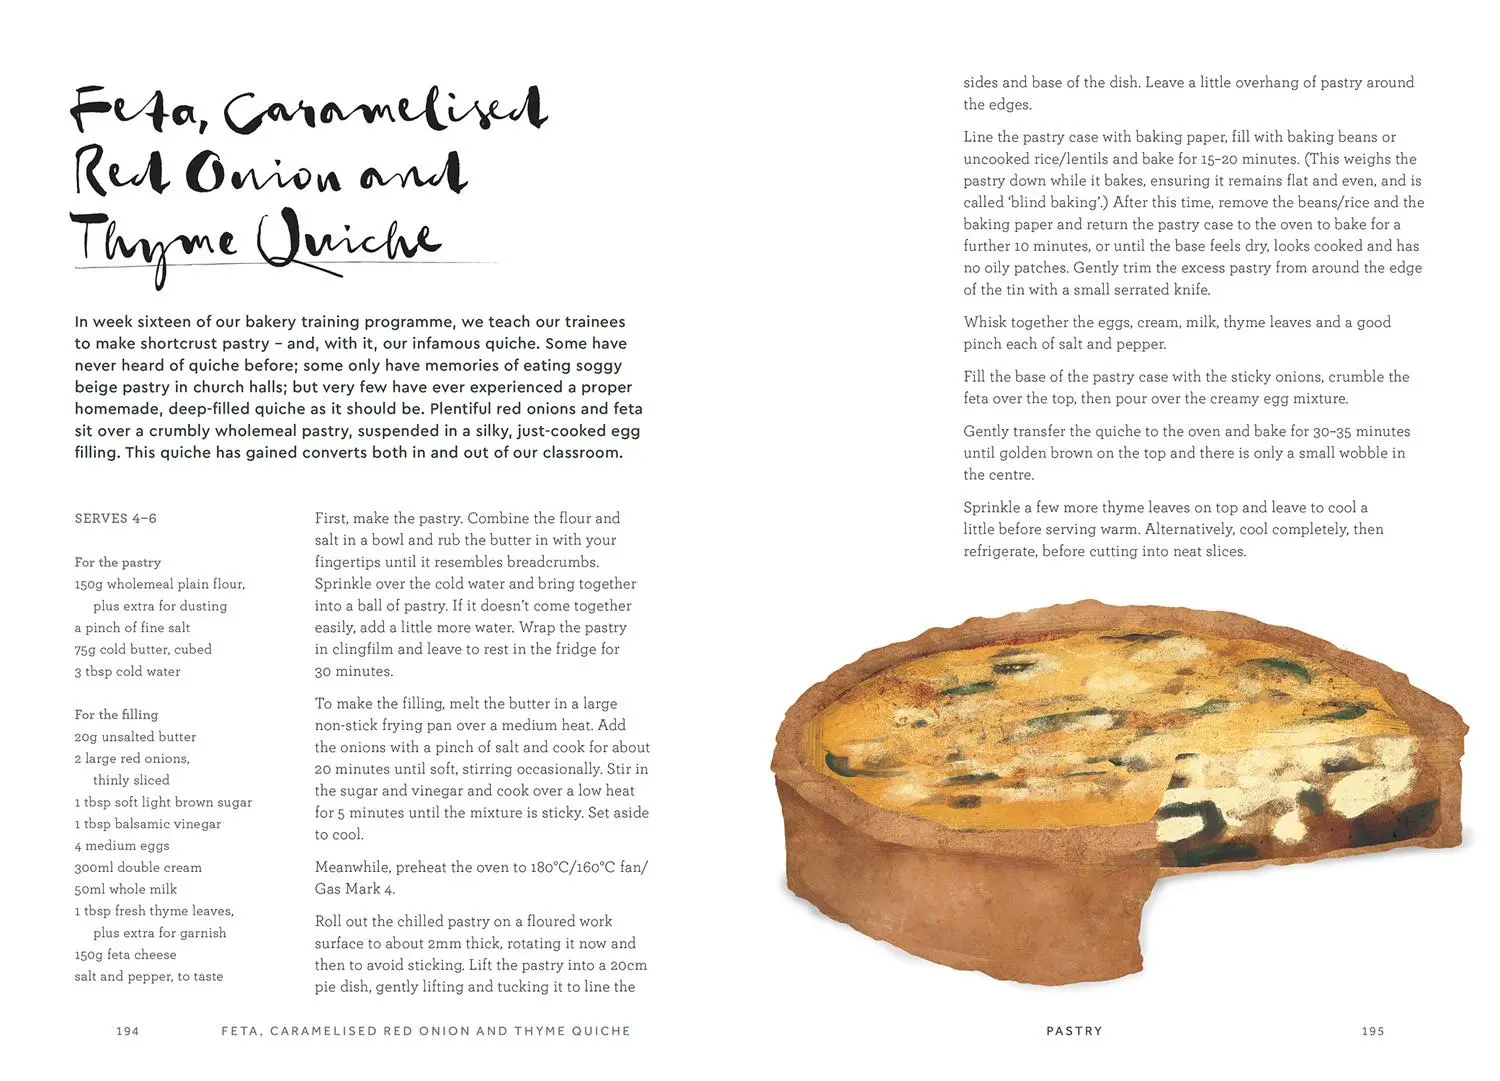 Feta, Caramelised
Red Onion and
Thyme Quiche
In week sixteen of our bakery training programme, we teach our trainees
to make shortcrust pastry – and, with it, our infamous quiche. Some have
never heard of quiche before; some only have memories of eating soggy
beige pastry in church halls; but very few have ever experienced a proper
homemade, deep-filled quiche as it should be. Plentiful red onions and feta
sit over a crumbly wholemeal pastry, suspended in a silky, just-cooked egg
filling. This quiche has gained converts both in and out of our classroom.
SERVES 4–6
For the pastry
150g wholemeal plain flour,
plus extra for dusting
a pinch of fine salt
75g cold butter, cubed
3 tbsp cold water
For the filling
20g unsalted butter
2 large red onions,
thinly sliced
1 tbsp soft light brown sugar
1 tbsp balsamic vinegar
4 medium eggs
300ml double cream
50ml whole milk
1 tbsp fresh thyme leaves,
plus extra for garnish
150g feta cheese
salt and pepper, to taste
First, make the pastry. Combine the flour and
salt in a bowl and rub the butter in with your
fingertips until it resembles breadcrumbs.
Sprinkle over the cold water and bring together
into a ball of pastry. If it doesn't come together
easily, add a little more water. Wrap the pastry
in clingfilm and leave to rest in the fridge for
30 minutes.
To make the filling, melt the butter in a large
non-stick frying pan over a medium heat. Add
the onions with a pinch of salt and cook for about
20 minutes until soft, stirring occasionally. Stir in
the sugar and vinegar and cook over a low heat
for 5 minutes until the mixture is sticky. Set aside
to cool.
Meanwhile, preheat the oven to 180°C/160°C fan/
Gas Mark 4.
Roll out the chilled pastry on a floured work
surface to about 2mm thick, rotating it now and
then to avoid sticking. Lift the pastry into a 20cm
pie dish, gently lifting and tucking it to line the
194
FETA, CARAMELISED RED ONION AND THYME QUICHE
sides and base of the dish. Leave a little overhang of pastry around
the edges.
Line the pastry case with baking paper, fill with baking beans or
uncooked rice/lentils and bake for 15–20 minutes. (This weighs the
pastry down while it bakes, ensuring it remains flat and even, and is
called 'blind baking'.) After this time, remove the beans/rice and the
baking paper and return the pastry case to the oven to bake for a
further 10 minutes, or until the base feels dry, looks cooked and has
no oily patches. Gently trim the excess pastry from around the edge
of the tin with a small serrated knife.
Whisk together the eggs, cream, milk, thyme leaves and a good
pinch each of salt and pepper.
Fill the base of the pastry case with the sticky onions, crumble the
feta over the top, then pour over the creamy egg mixture.
Gently transfer the quiche to the oven and bake for 30–35 minutes
until golden brown on the top and there is only a small wobble in
the centre.
Sprinkle a few more thyme leaves on top and leave to cool a
little before serving warm. Alternatively, cool completely, then
refrigerate, before cutting into neat slices.
PASTRY
195